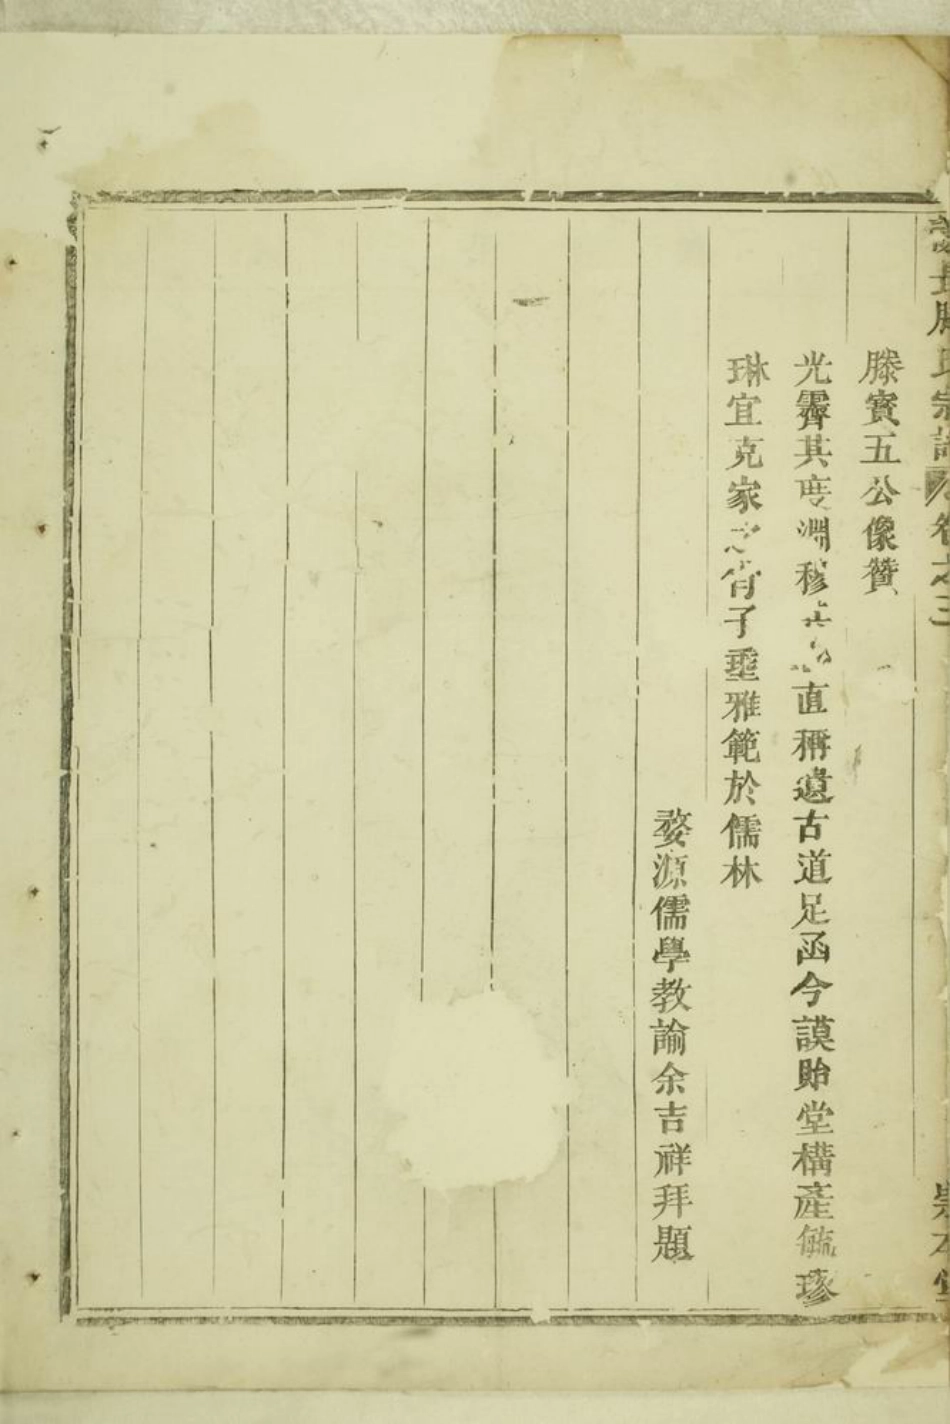 滕賓五公像贊
光霽其度淵穆其直稱遺古道足函今謨貽堂構產毓琢
琳宜克家之肖子垂雅範於儒林
婺源儒學教諭余吉祥拜題
滕氏宗譜卷之三
崇本堂